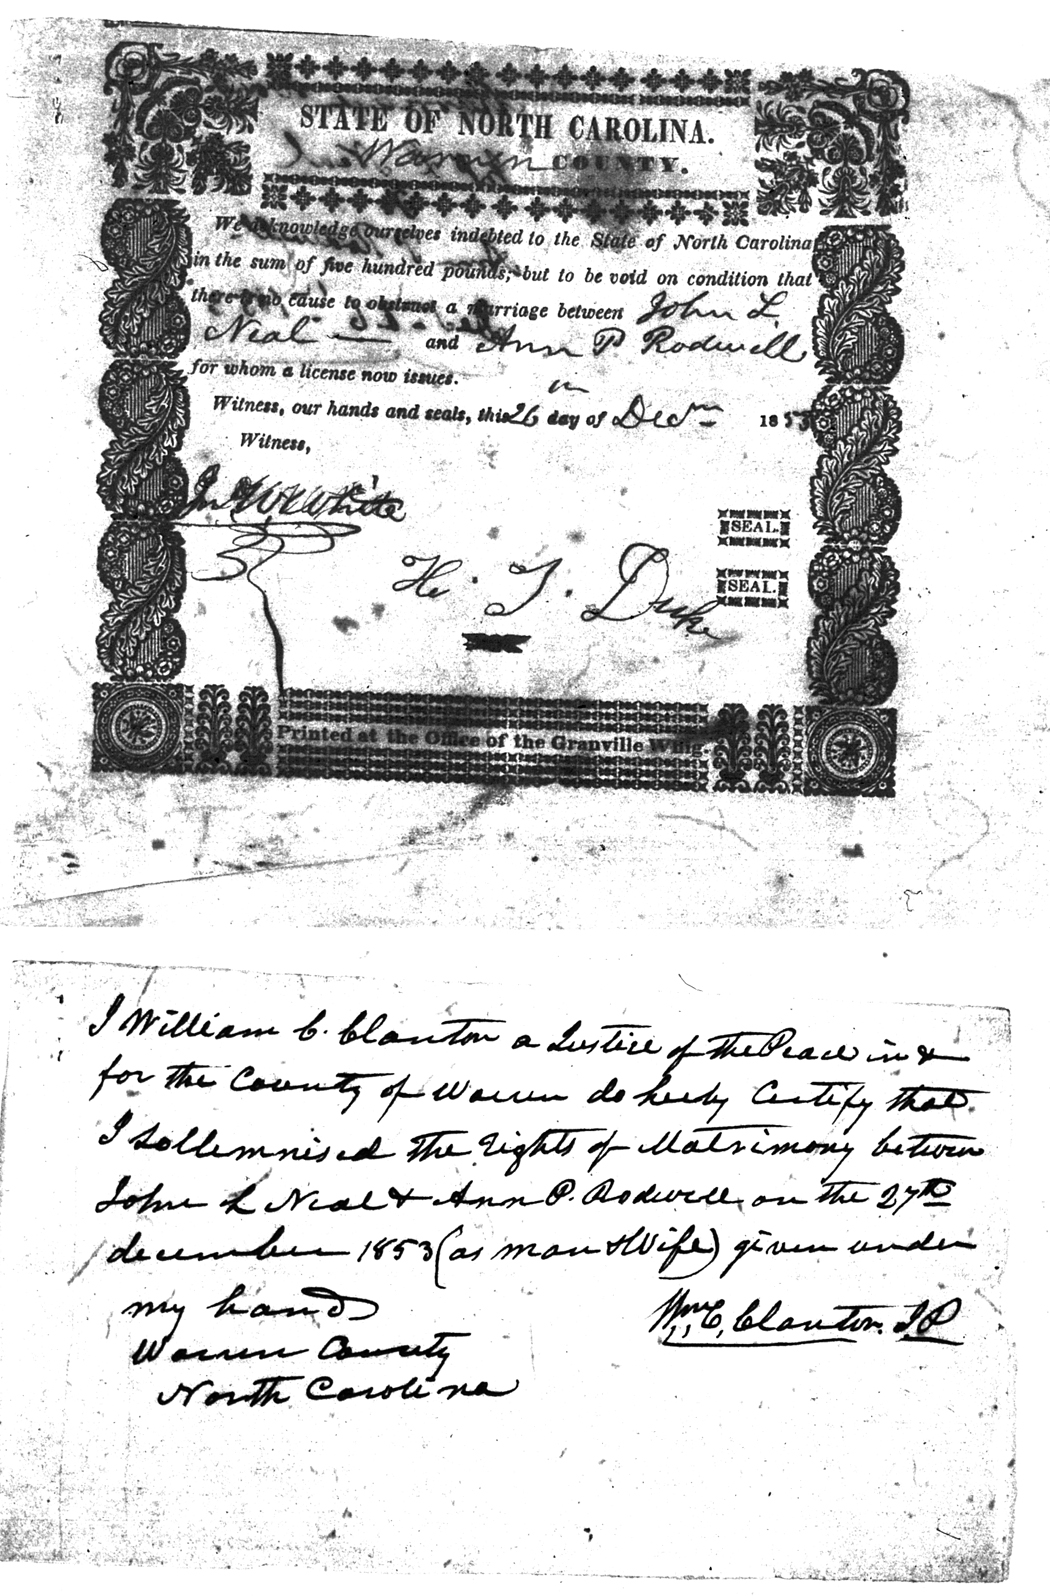 STATE OF NORTH CAROLINA.
Warren COUNTY.
We acknowledge ourselves indebted to the State of North Carolina
in the sum of five hundred pounds; but to be void on condition that
there is no cause to obstruct a marriage between John L.
Neal — and Ann P Rodwell
for whom a license now issues.
Witness, our hands and seals, this 26 day of Decm 1853
Witness,
Jn W White
SEAL.
H. T. Duke
SEAL.
Printed at the Office of the Granville Whig.
I William C. Clanton a Justice of the Peace in &
for the County of Warren do herby Certify that
I Sollemnised the Rights of Matrimony between
John L Neal & Ann P. Rodwell on the 27th
december 1853 (as man & Wife) given under
my hand
Wm, C, Clanton. JP
Warren County
North Carolina